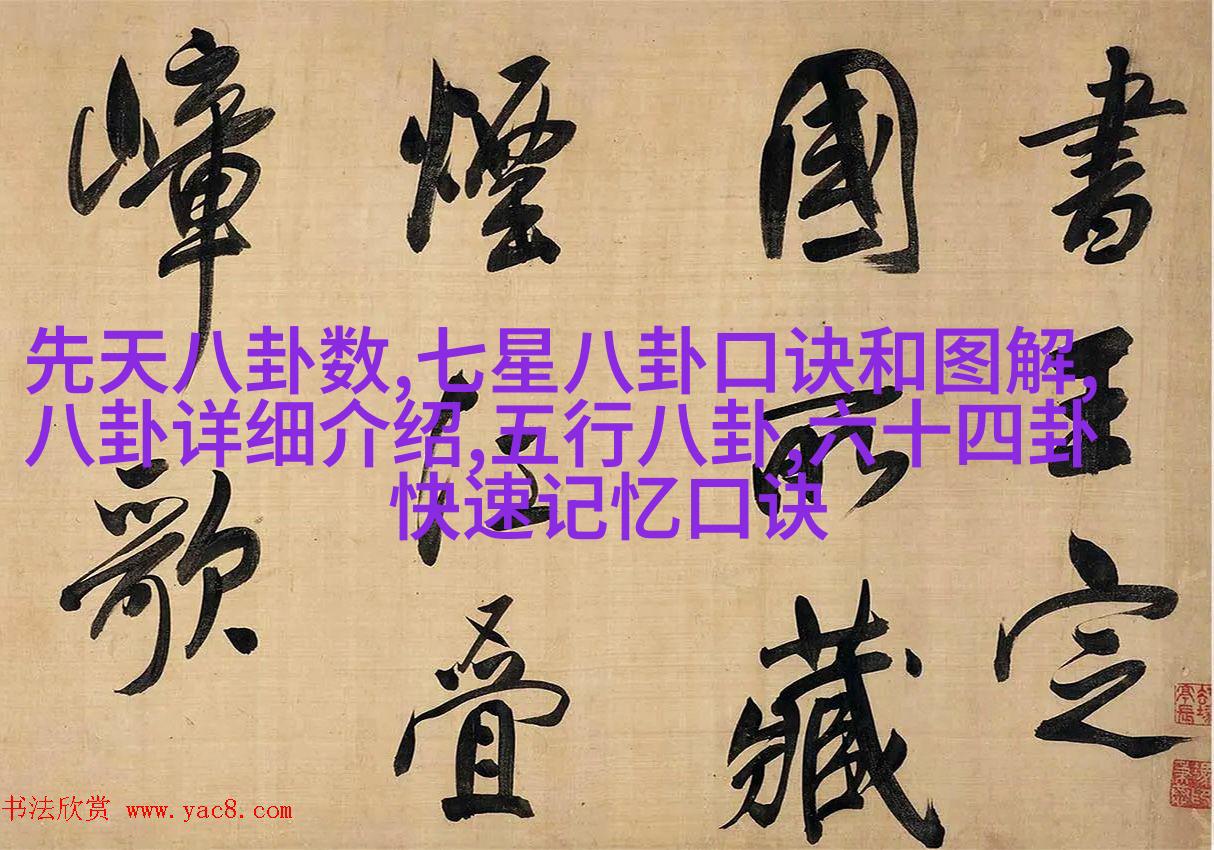 書王定
國所藏
煙江疊
嶂歌
先天八卦数,七星八卦口诀和图解,
八卦详细介绍,五行八卦,六十四卦
快速记忆口诀
书法欣赏 www.yac8.com